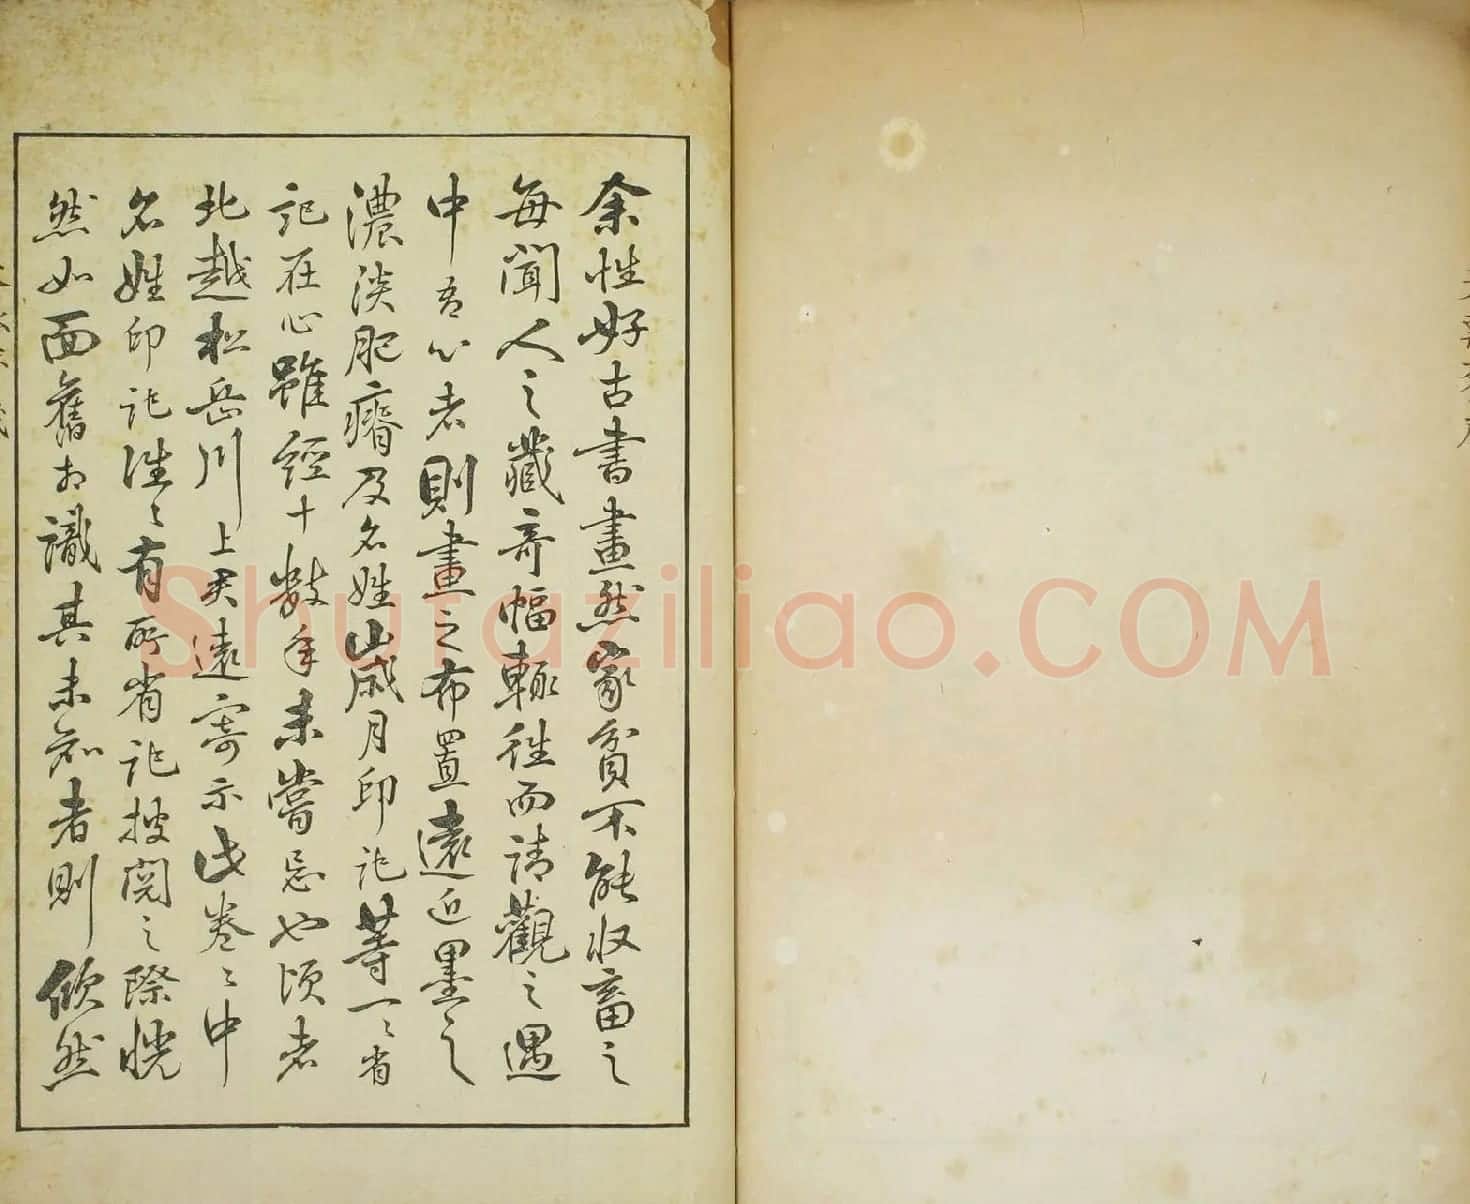 余性好古書畫然家貧不能收畜之
每聞人之藏奇幅輙往而請觀之遇
中吾心者則畫之布置遠近墨之
濃淡肥瘠及名姓歲月印記等一々省
記在心雖經十數年未嘗忘也頃者
北越松岳川上君遠寄示此卷々中
名姓印記往々有所省記披閱之際恍
然如面舊相識其未知者則俶然
Shufaziliao.COM